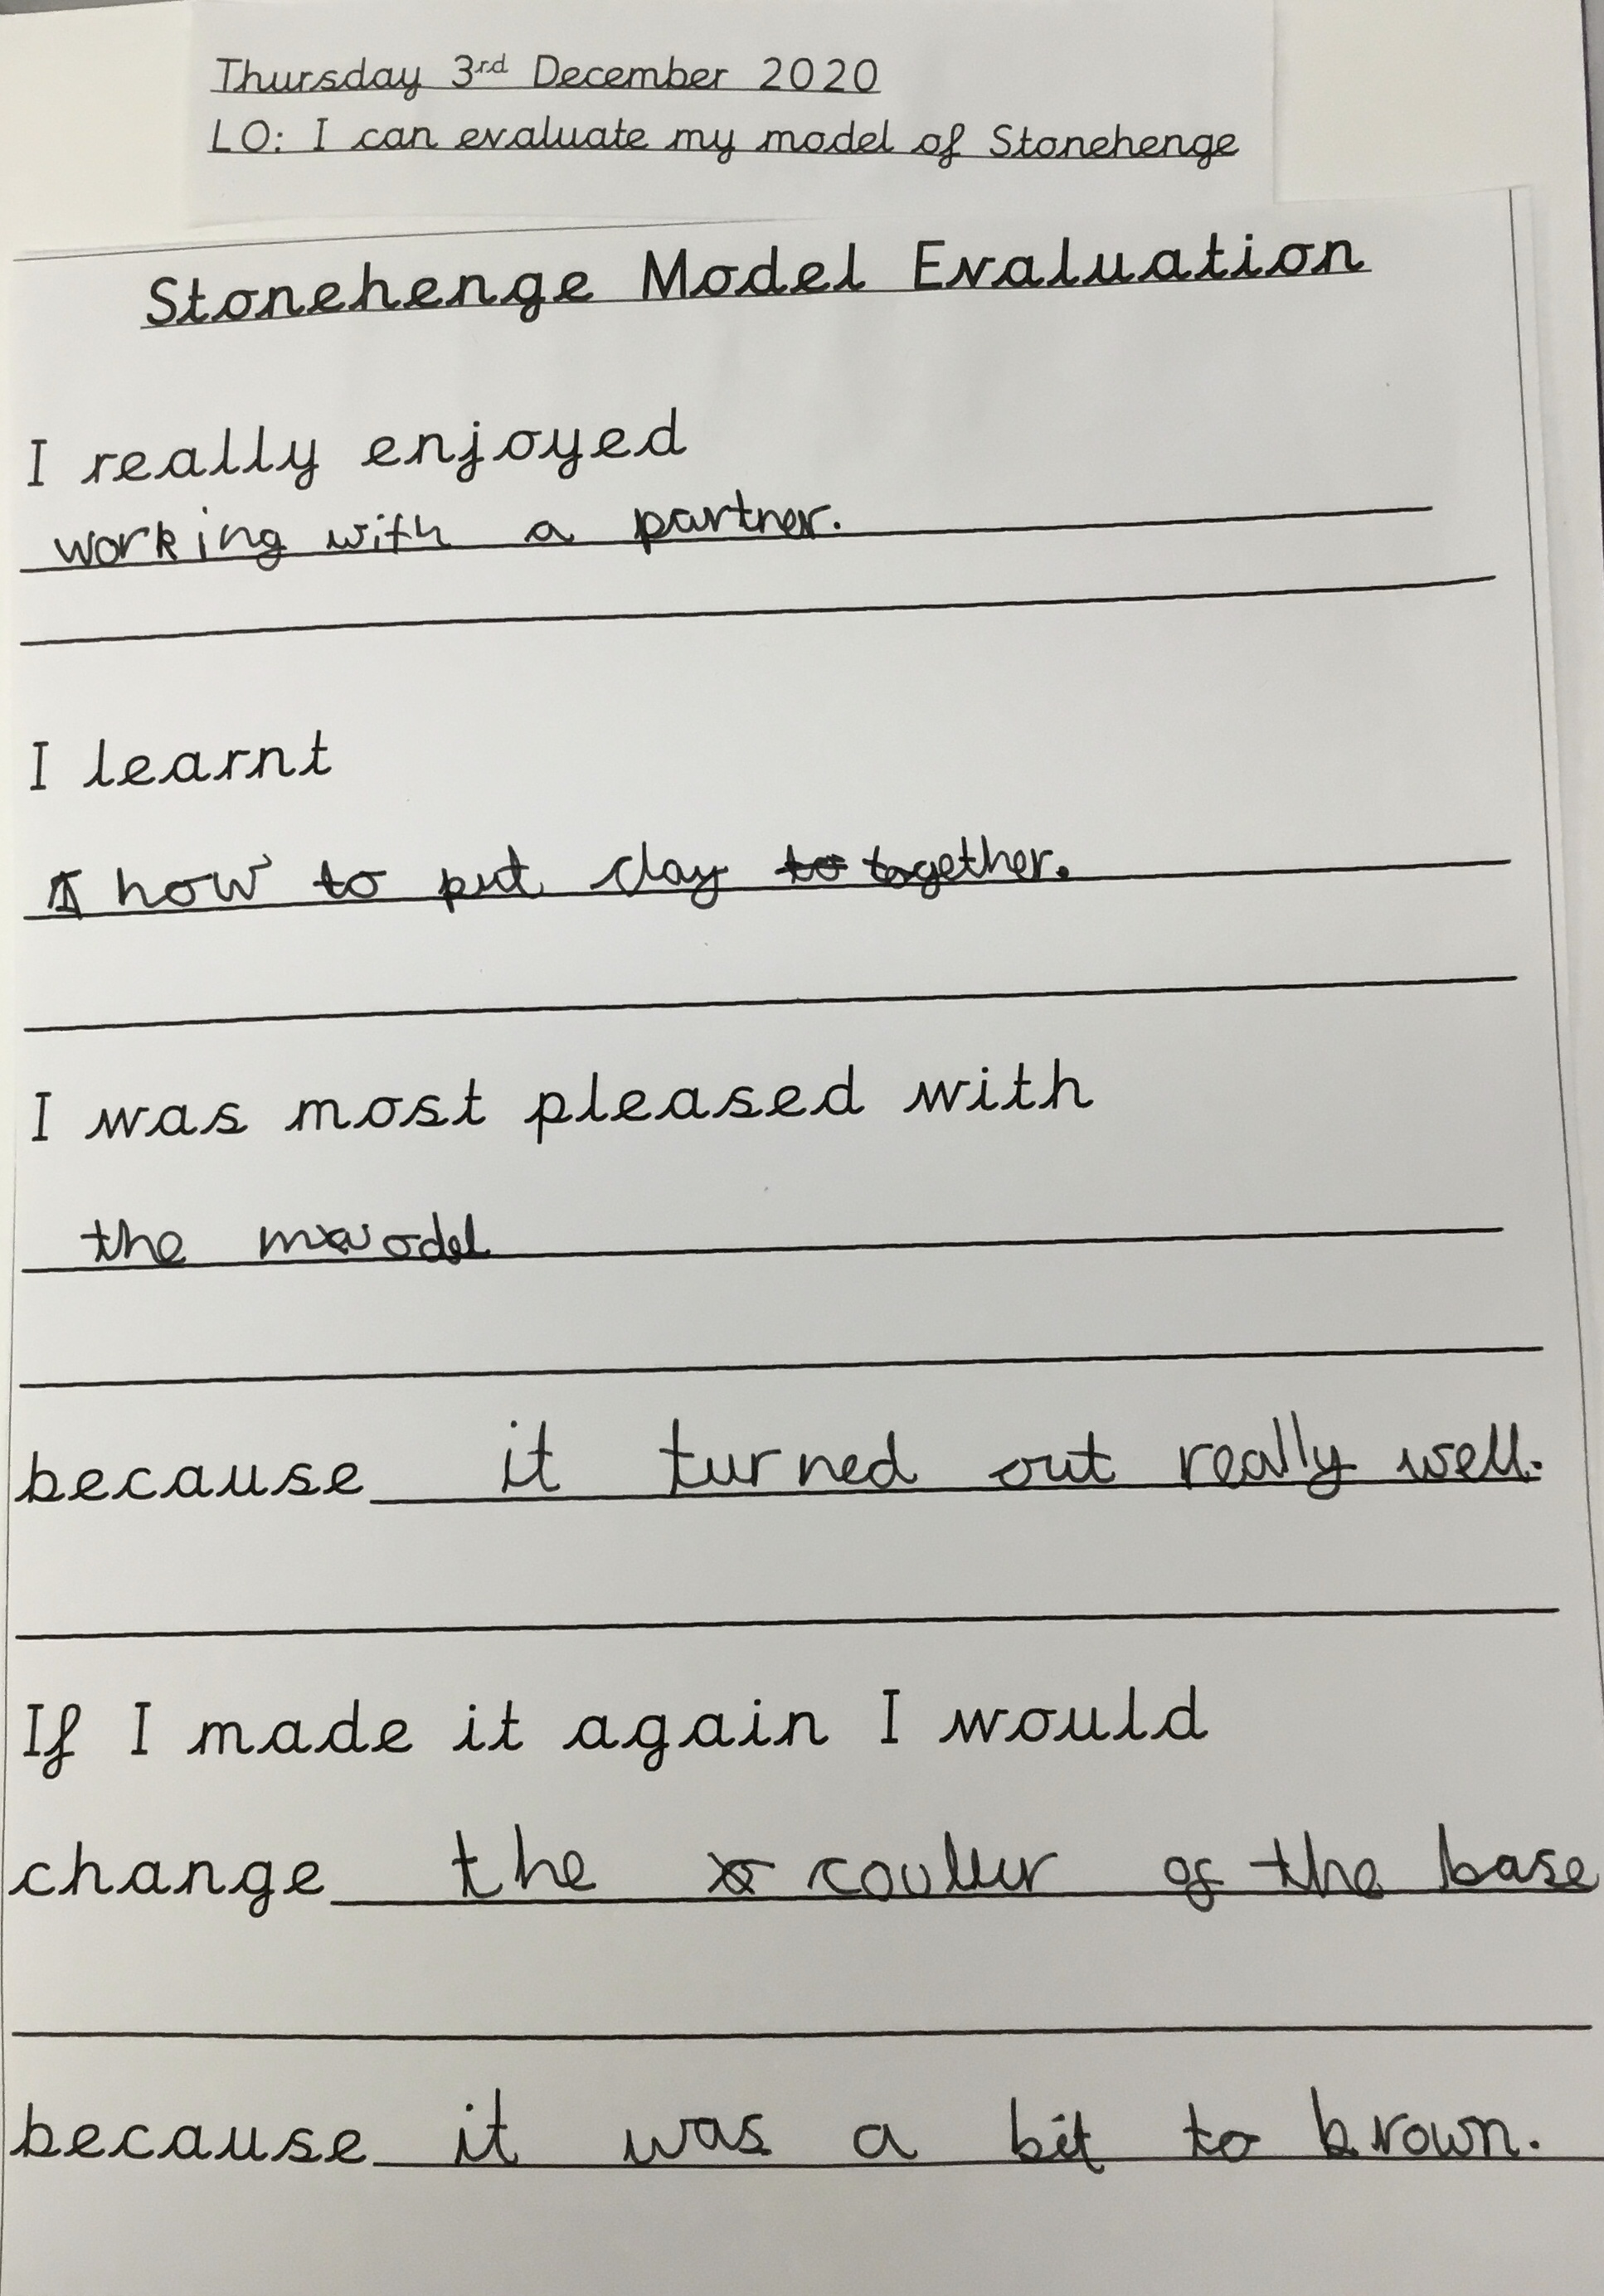 Thursday 3rd December 2020
LO: I can evaluate my model of Stonehenge
Stonehenge Model Evaluation
I really enjoyed
working with a partner.
I learnt
how to put clay together.
I was most pleased with
the model
because it turned out really well.
If I made it again I would
change the couller of the base
because it was a bit to brown.